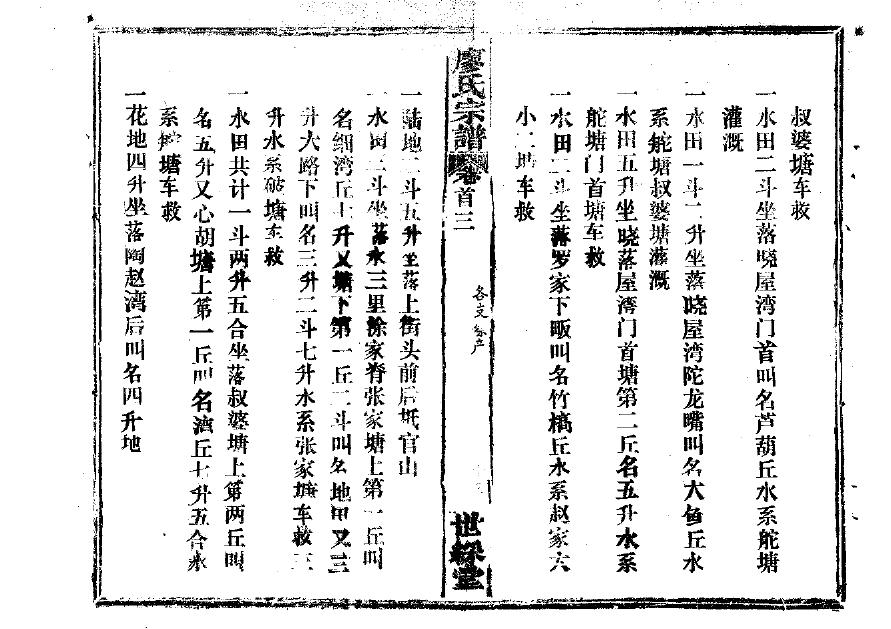 叔婆塘车救
一水田二斗坐落晓屋湾门首叫名芦葫丘水系舵塘
灌溉
一水田一斗二升坐落晓屋湾陀龙嘴叫名大鱼丘水
系舵塘叔婆塘灌溉
一水田五升坐晓落屋湾门首塘第二丘名五升水系
舵塘门首塘车救
一水田二斗坐落罗家下畈叫名竹槁丘水系赵家六
小二塘车救
廖氏宗譜 卷首三
各支 产
世綵堂
一陆地二斗五升坐落上街头前后坻官山
一水田三斗坐落永三里徐家脊张家塘上第一丘叫
名细湾丘七升又塘下第一丘二斗叫名地甲又三
升大路下叫名三升二斗七升水系张家塘车救三
升水系破塘车救
一水田共计一斗两升五合坐落叔婆塘上第两丘叫
名五升又心胡塘上第一丘叫名 丘七升五合水
系舵塘车救
一花地四升坐落陶赵湾后叫名四升地